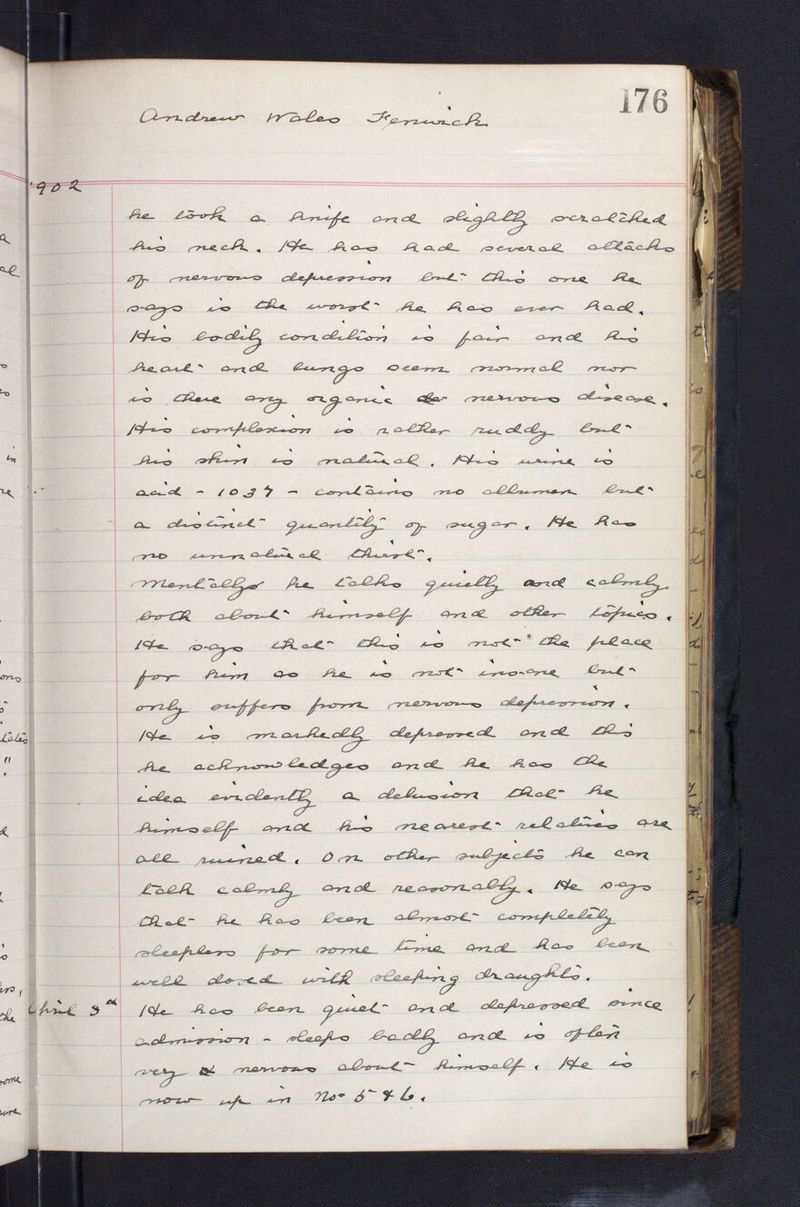 176
Andrew Wales Fenwick
1902
he took a knife and slightly scratched
his neck. He has had several attacks
of nervous depression but this one he
says is the worst he has ever had.
His bodily condition is fair and his
heart and lungs seem normal nor
is there any organic nervous disease.
His complexion is rather ruddy but
his skin is natural. His urine is
acid - 1037 - contains no albumen but
a distinct quantity of sugar. He has
no unnatural thirst.
Mentally he talks quietly and calmly
both about himself and other topics.
He says that this is not the place
for him as he is not insane but
only suffers from nervous depression.
He is markedly depressed and this
he acknowledges and he has the
idea evidently a delusion that he
himself and his nearest relatives are
all ruined. On other subjects he can
talk calmly and reasonably. He says
that he has been almost completely
sleepless for some time and has been
well dosed with sleeping draughts.
April 3rd He has been quiet and depressed since
admission - sleeps badly and is often
very nervous about himself. He is
now up in No 5 & 6.